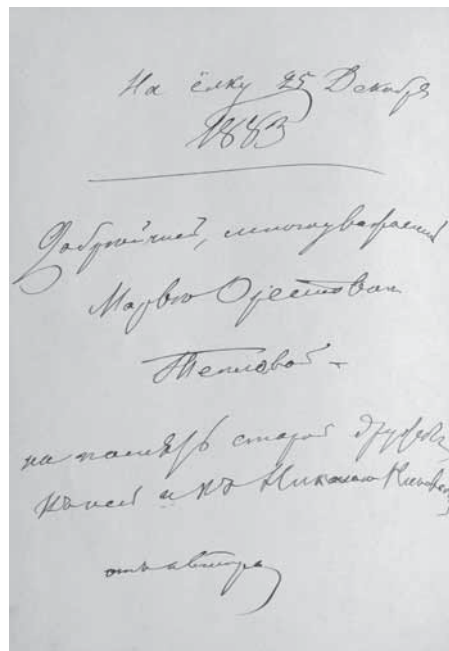 На ёлку 25 Декабря
1883
Добрѣйшей, многоуважаемой
Марьѣ Орестовнѣ
Тепловой -
на память старой дружбы
къ ней и къ Николаю
отъ автора